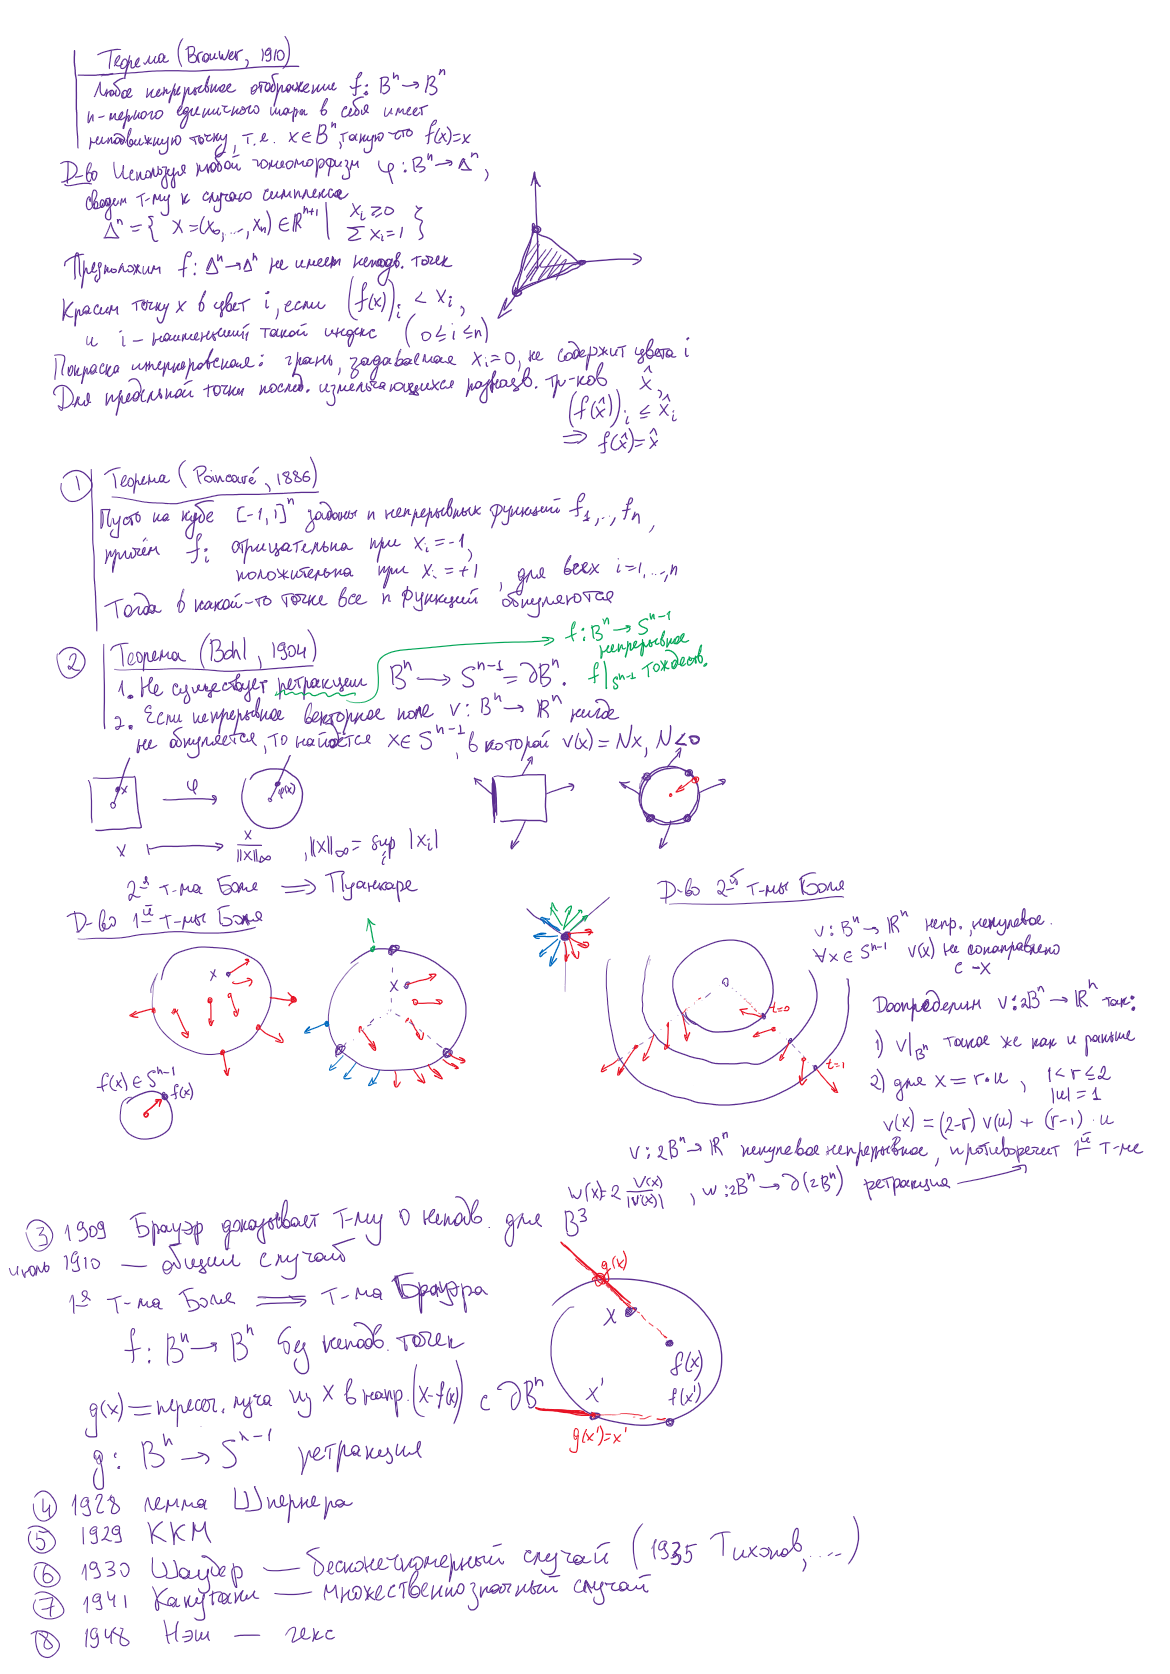 Теорема (Brouwer, 1910)
Любое непрерывное отображение f: Bⁿ → Bⁿ
n-мерного единичного шара в себя имеет
неподвижную точку, т.е. x ∈ Bⁿ, такую что f(x)=x
Д-во Используя любой гомеоморфизм φ: Bⁿ → Δⁿ,
сводим т-му к случаю симплекса
Δⁿ = { x = (x₀, ..., xₙ) ∈ ℝⁿ⁺¹ | xᵢ ≥ 0
∑ xᵢ = 1 }
Предположим f: Δⁿ → Δⁿ не имеет неподв. точек
Красим точку x в цвет i, если (f(x))ᵢ < xᵢ,
и i – наименьший такой индекс (0 ≤ i ≤ n)
Покраска шпернеровская: грань, задаваемая xᵢ=0, не содержит цвета i
Для предельной точки послед. измельчающихся разноцв. тр-ков x̂,
(f(x̂))ᵢ ≤ x̂ᵢ
⇒ f(x̂) = x̂
1 Теорема (Poincaré, 1886)
Пусть на кубе [-1,1]ⁿ заданы n непрерывных функций f₁, .., fₙ,
причём fᵢ отрицательна при xᵢ=-1,
положительна при xᵢ=+1, для всех i=1,...,n
Тогда в какой-то точке все n функций обнуляются
f: Bⁿ → Sⁿ⁻¹
непрерывное
f|Sⁿ⁻¹ тождеств.
2 Теорема (Bohl, 1904)
1. Не существует ретракции Bⁿ → Sⁿ⁻¹ = ∂Bⁿ.
2. Если непрерывное векторное поле v: Bⁿ → ℝⁿ нигде
не обнуляется, то найдётся x ∈ Sⁿ⁻¹, в которой v(x) = Nx, N<0
x φ φ(x)
x ↦ x/‖x‖∞, ‖x‖∞ = sup |xᵢ|
i
2я т-ма Боля ⇒ Пуанкаре
Д-во 1й т-мы Боля
x
x
f(x) ∈ Sⁿ⁻¹
f(x)
Д-во 2й т-мы Боля
v: Bⁿ → ℝⁿ непр., ненулевое.
∀x ∈ Sⁿ⁻¹ v(x) не сонаправлено
с -x
t=0
t=1
Доопределим v: 2Bⁿ → ℝⁿ так:
1) v|Bⁿ такое же как и раньше
2) для x = r·u, 1<r≤2
|u|=1
v(x) = (2-r) v(u) + (r-1)·u
v: 2Bⁿ → ℝⁿ ненулевое непрерывное, противоречит 1й т-ме
w(x) = 2 v(x)/|v(x)|, w: 2Bⁿ → ∂(2Bⁿ) ретракция
3 1909 Брауэр доказывает т-му о неподв. для B³
июль 1910 — общий случай
1я т-ма Боля ⇒ т-ма Брауэра
f: Bⁿ → Bⁿ без неподв. точек
g(x) = пересеч. луча из x в напр. (x-f(x)) с ∂Bⁿ
g: Bⁿ → Sⁿ⁻¹ ретракция
g(x)
x
f(x)
f(x')
x'
g(x')=x'
4 1928 лемма Шпернера
5 1929 ККМ
6 1930 Шаудер — бесконечномерный случай (1935 Тихонов, ....)
7 1941 Какутани — множественнозначный случай
8 1948 Нэш — гекс